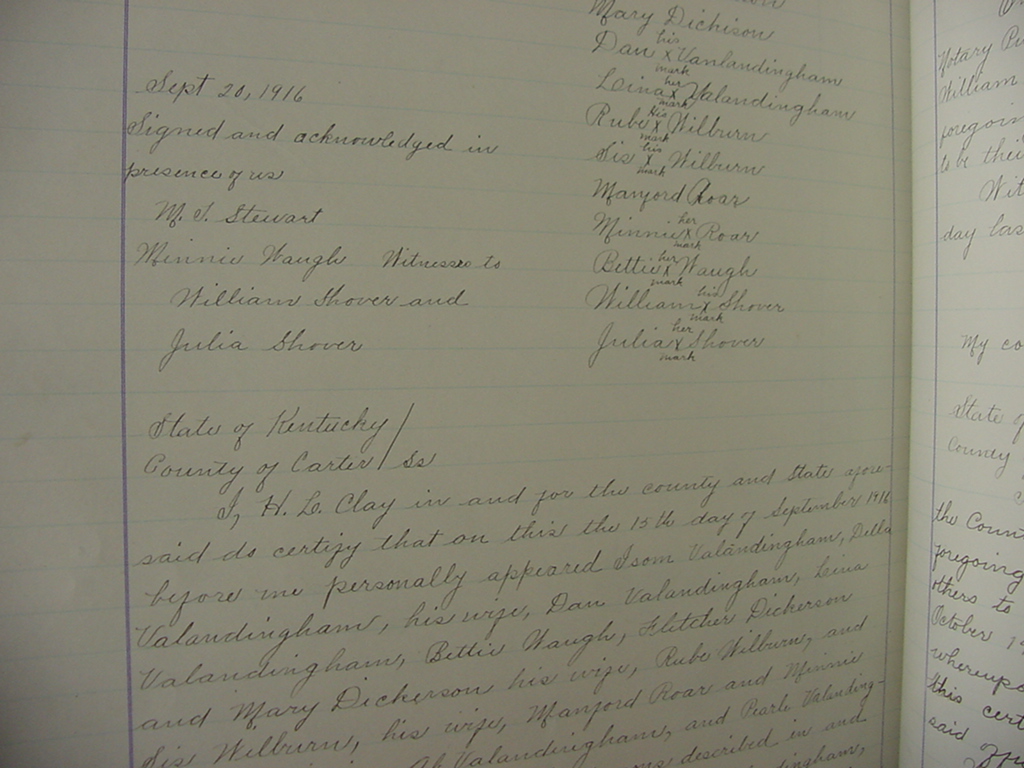 Mary Dickison
his
Dan x Vanlandingham
mark
her
Leina x Valandingham
mark
His
Rube x Wilburn
mark
his
Sis x Wilburn
mark
Manford Roar
her
Minnie x Roar
mark
her
Bettie x Waugh
mark
his
William x Shover
mark
her
Julia x Shover
mark
Sept 20, 1916
Signed and acknowledged in
presence of us
M. S. Stewart
Minnie Waugh Witnesses to
William Shover and
Julia Shover
State of Kentucky /
County of Carter / Ss
I, H. L. Clay in and for the county and State afore-
said do certify that on this the 15th day of September 1916
before me personally appeared Isom Valandingham, Della
Valandingham, his wife, Dan Valandingham, Leina
Valandingham, Bettie Waugh, Fletcher Dickerson
and Mary Dickerson his wife, Rube Wilburn, and
Sis Wilburn, his wife, Manford Roar and Minnie
Valandingham, and Pearle Valanding-
described in and
Notary Pu
William
foregoin
to be thei
Wit
day las
My co
State of
County
the Coun
foregoing
others to
October 19
whereupo
this cert
said